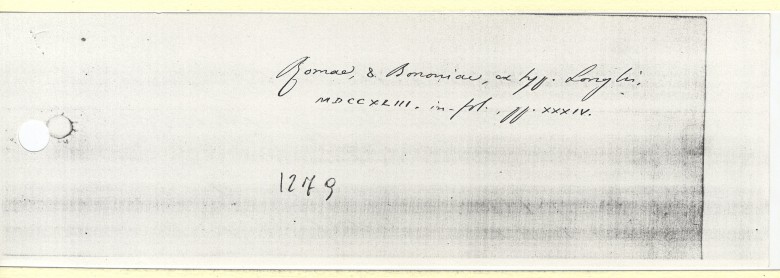 Romae, & Bononiae, ex typ. Longhi,
MDCCXLIII. in-fol., pp. XXXIV.
1279